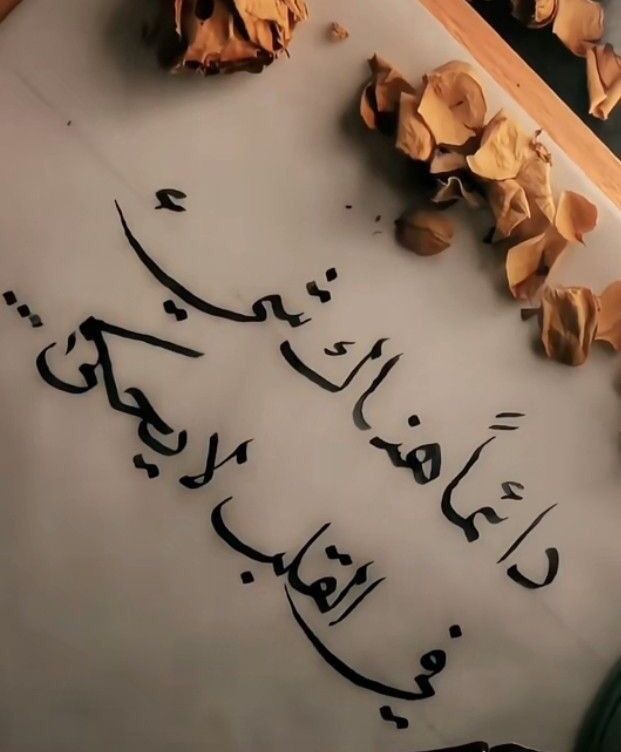 دائماً هناك شيئ
في القلب لا يحكىٰ...